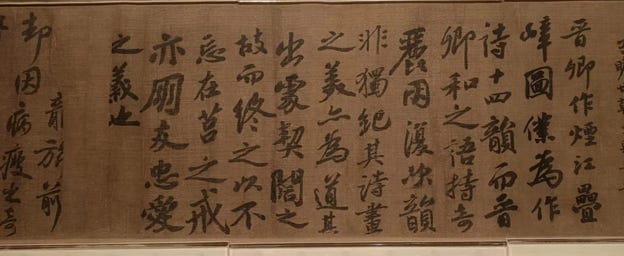 晉卿作煙江疊
嶂圖僕為作
詩十四韻而晉
卿和之語特奇
麗因復次韻
非獨紀其詩畫
之美亦為道其
出處契闊之
故而終之以不
忘在莒之戒
亦朋友忠愛
之義也
龍旂前
却因病瘦出奇